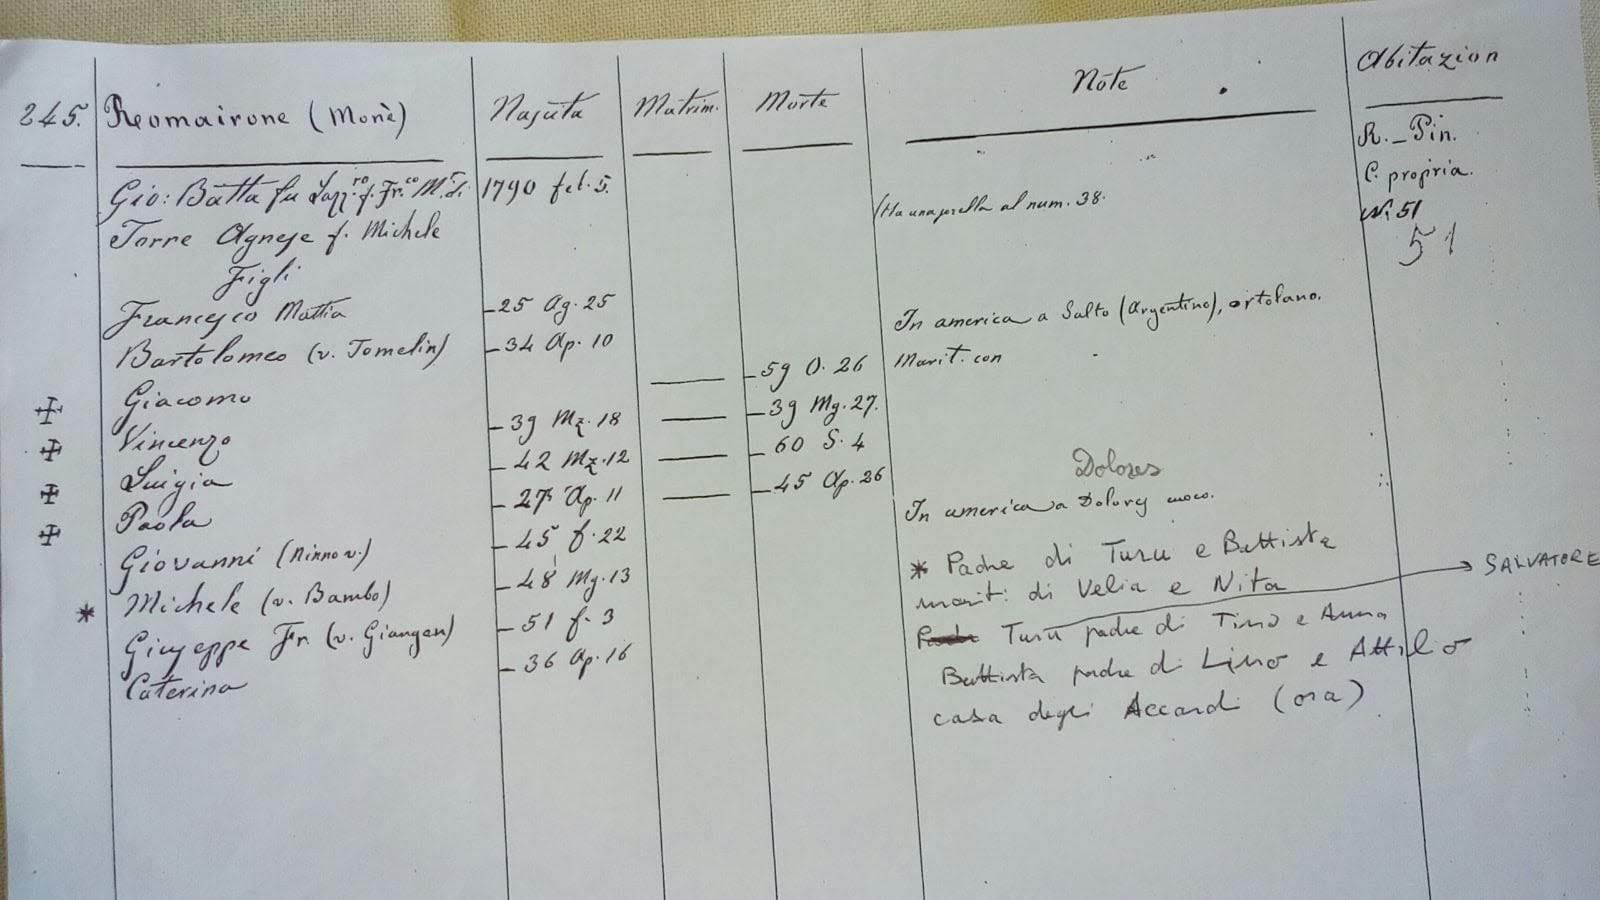 245. Reomairone (Monè) Nascita Matrim. Morte Note Abitazion
R. Pin.
Gio: Batta fu Lazz.ro f. Fr.co M.a 1790 feb. 5. C. propria.
Torre Agnese f. Michele (Ha una sorella al num. 38. N. 51
51
Figli
Francesco Mattia -25 Ag. 25 In america a Salto (Argentino), ortolano.
Bartolomeo (v. Tomelin) -34 Ap. 10 Marit. con
Giacomo — -59 O. 26
Vincenzo -39 Mz. 18 — -39 Mg. 27.
Luigia -42 Mz. 12 — -60 S. 4
Dolores
Paola -27 Ap. 11 — -45 Ap. 26 In america a Dolory cuoco.
Giovanni (Ninno v.) -45 f. 22
* Padre di Turu e Battista
* Michele (v. Bambo) -48 Mg. 13 mariti di Velia e Nita SALVATORE
Giuseppe Fr. (v. Giangen) -51 f. 3 Turu padre di Tino e Anna
Caterina -36 Ap. 16 Battista padre di Lino e Attilio
casa degli Accardi (ora)